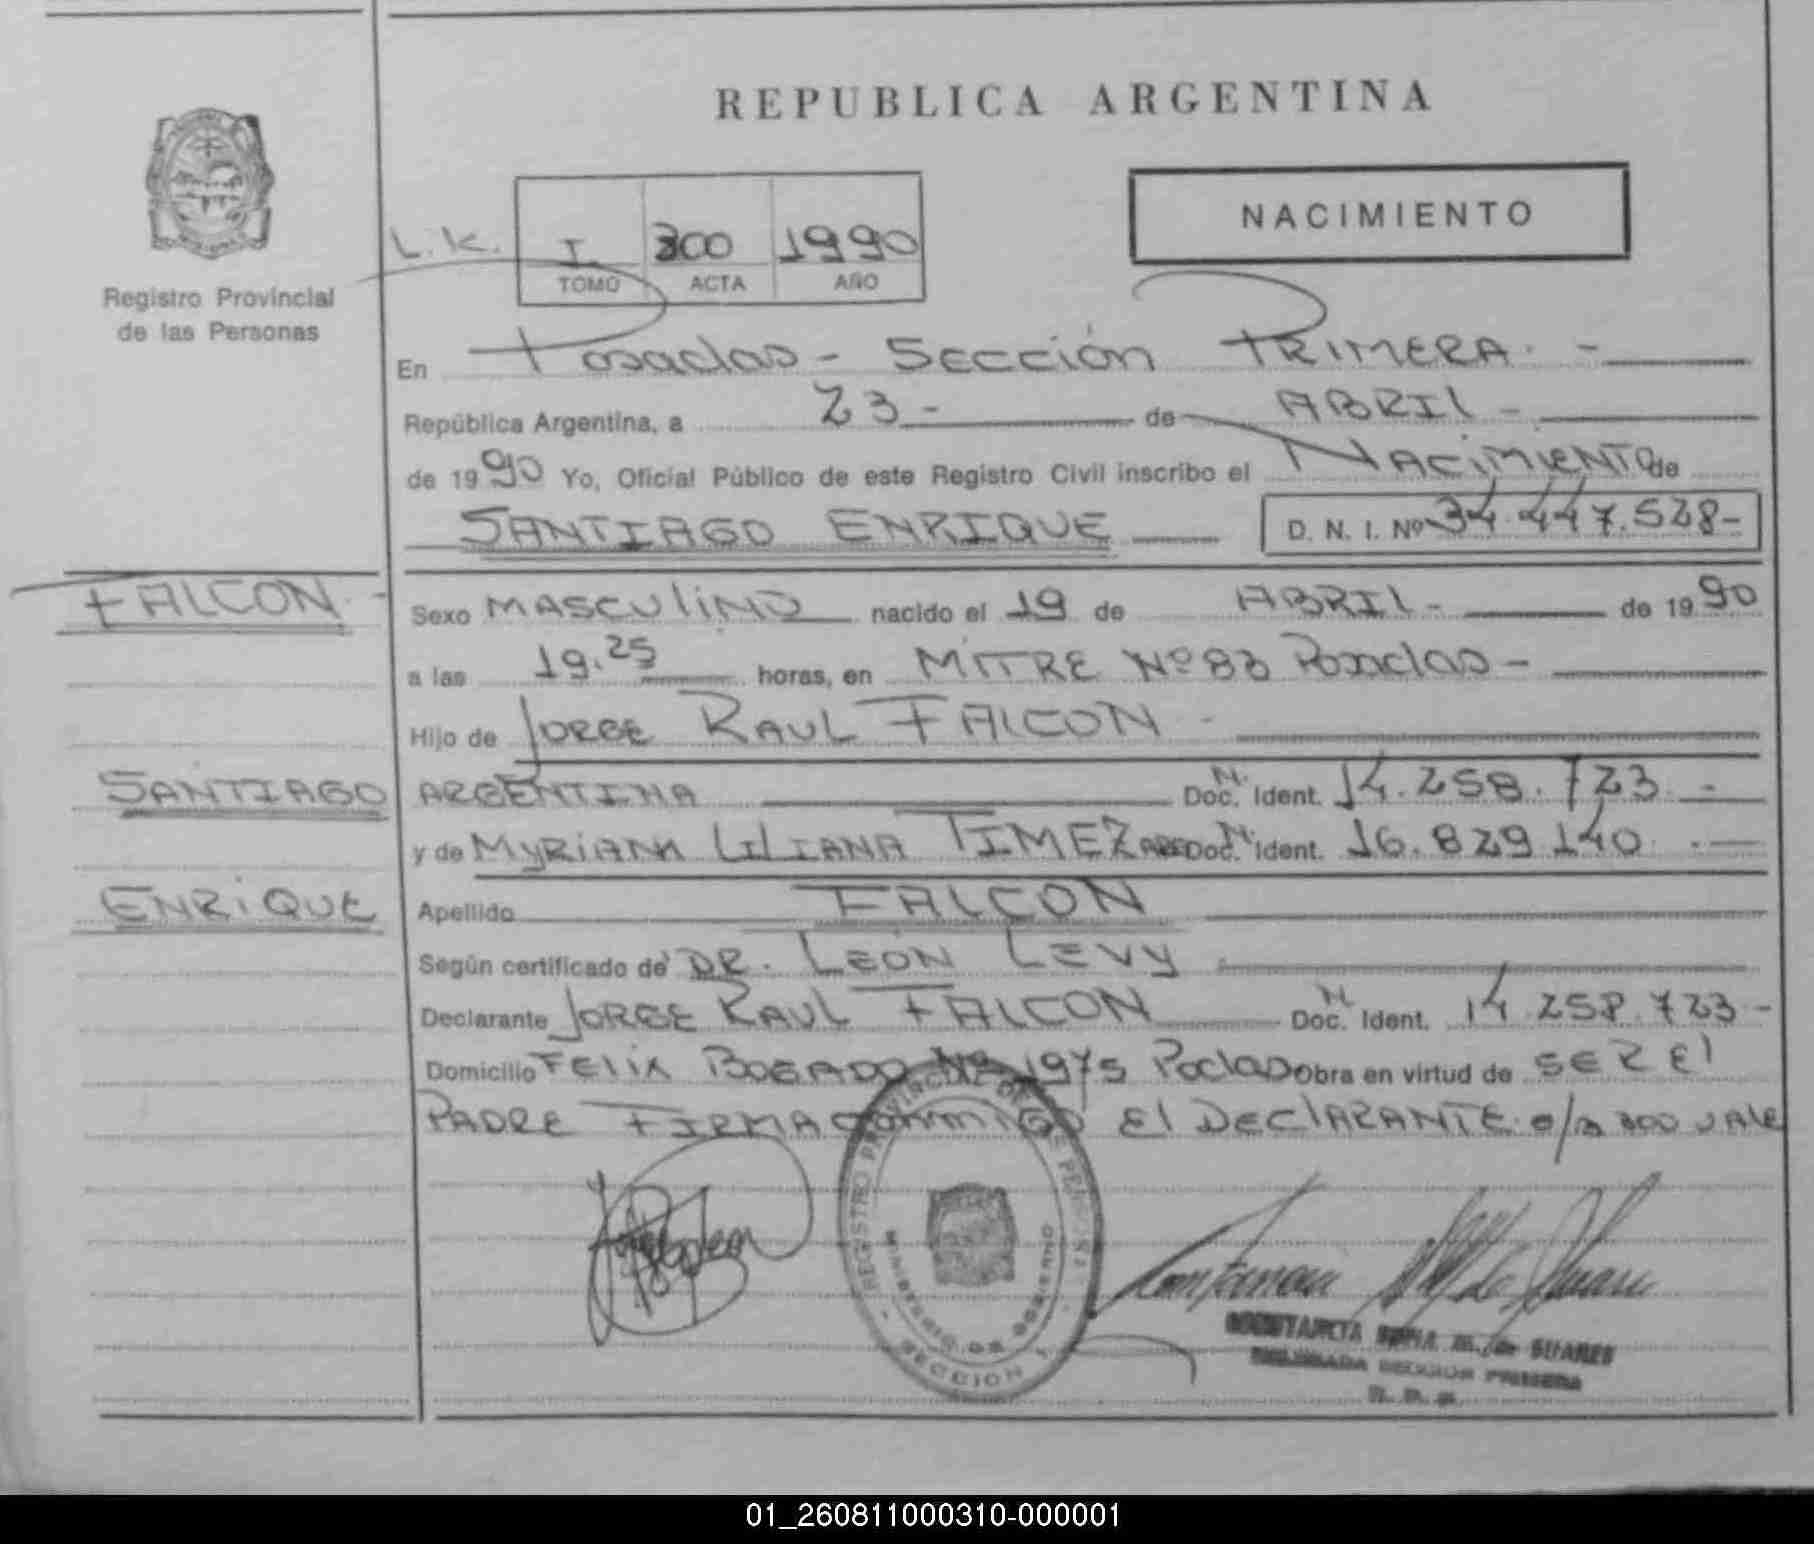 REPUBLICA ARGENTINA
NACIMIENTO
L.K. I 300 1990
TOMO ACTA AÑO
Registro Provincial
de las Personas
En Posadas - Sección PRIMERA. -
República Argentina, a 23 - de ABRIL -
de 1990 Yo, Oficial Público de este Registro Civil inscribo el NACIMIENTO de
SANTIAGO ENRIQUE D. N. I. Nº 34.447.528-
FALCON -
Sexo MASCULINO nacido el 19 de ABRIL - de 1990
a las 19.25 horas, en MITRE Nº 83 Posadas -
Hijo de JORGE RAUL FALCON -
SANTIAGO
ARGENTINA Doc. N. Ident. 14.258.723 -
y de MYRIAM LILIANA TIMEZ Doc. N. Ident. 16.829.140. -
ENRIQUE
Apellido FALCON
Según certificado de DR. LEON LEVY
Declarante JORGE RAUL FALCON Doc. N. Ident. 14.258.723 -
Domicilio FELIX BOGADO Nº 1975 Podas Obra en virtud de SER El
PADRE FIRMA conmigo El DEClARANTE. o/r 300 VALE
REGISTRO PROVINCIAL DE LAS PERSONAS
MINISTERIO DE GOBIERNO
SECCION 1
M. de SUARES
DELEGADA SECCION PRIMERA
01_260811000310-000001